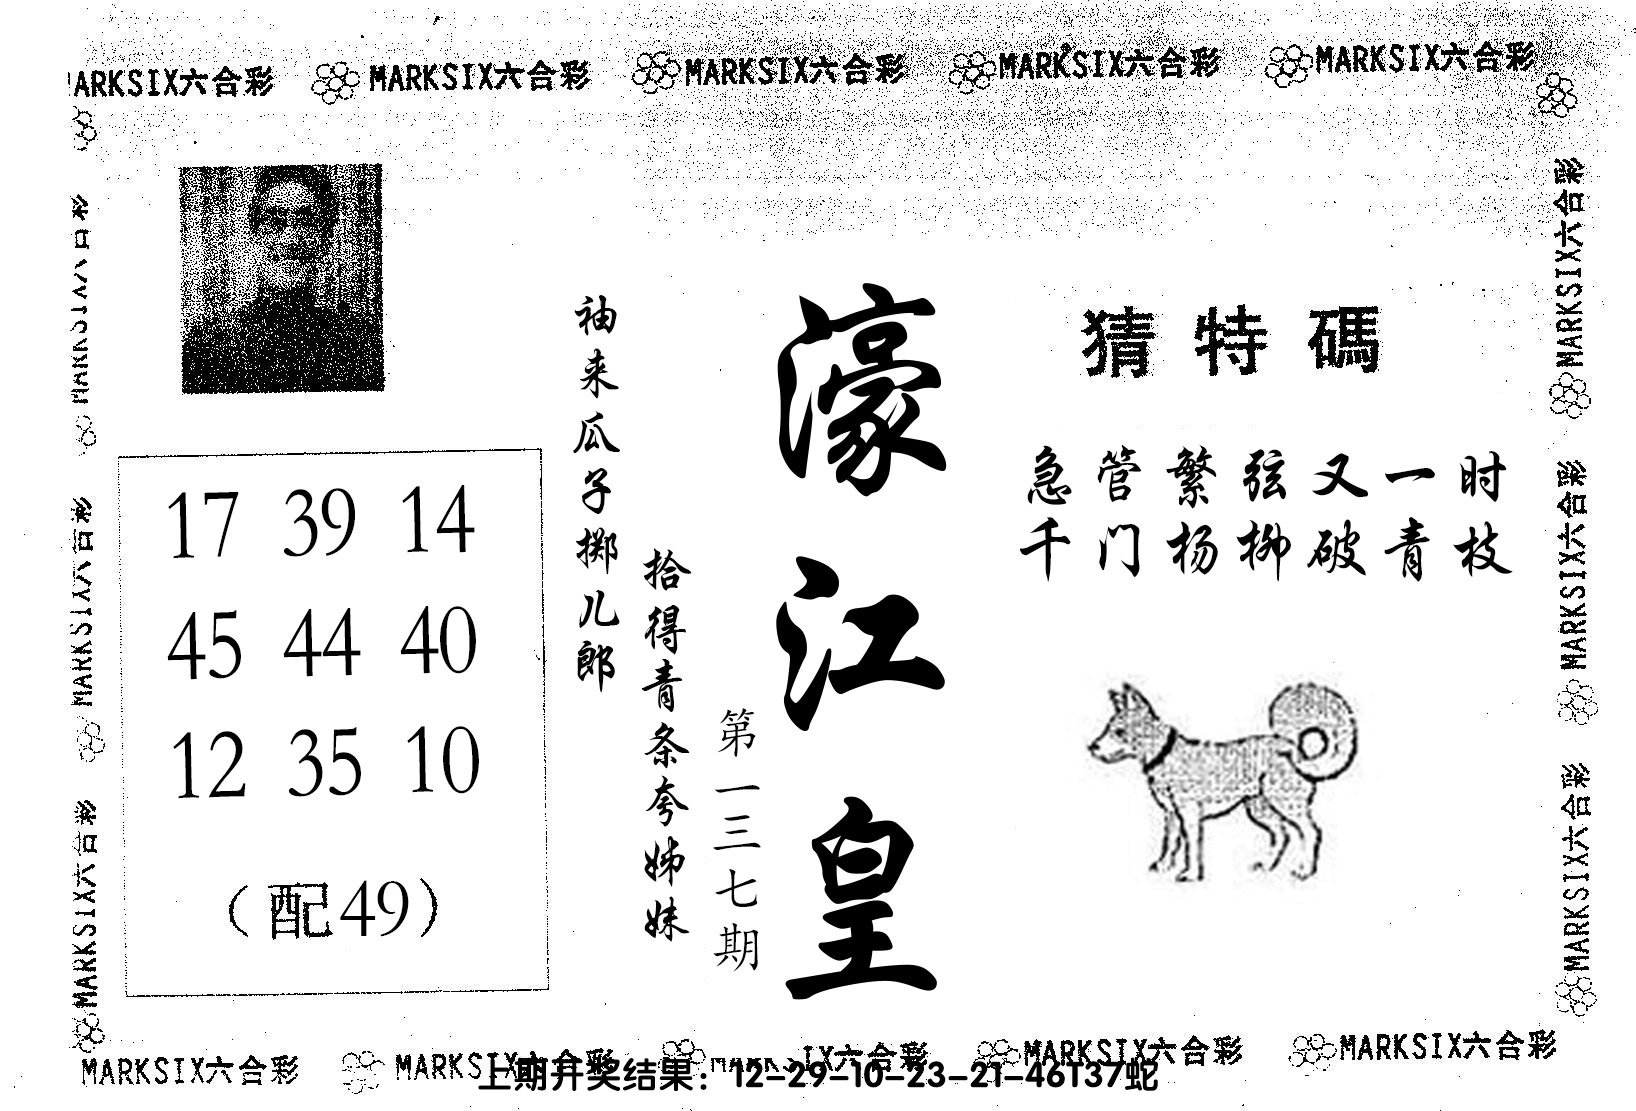 MARKSIX六合彩 MARKSIX六合彩 MARKSIX六合彩 MARKSIX六合彩 MARKSIX六合彩
猜特碼
急管繁弦又一时
千门杨柳破青枝
濠江皇
第一三七期
拾得青条夸姊妹
袖来瓜子掷儿郎
17 39 14
45 44 40
12 35 10
（配49）
MARKSIX六合彩
MARKSIX六合彩
MARKSIX六合彩
MARKSIX六合彩
MARKSIX六合彩
MARKSIX六合彩
MARKSIX六合彩 MARKSIX六合彩 MARKSIX六合彩 MARKSIX六合彩 MARKSIX六合彩
上期开奖结果：12-29-10-23-21-46T37蛇